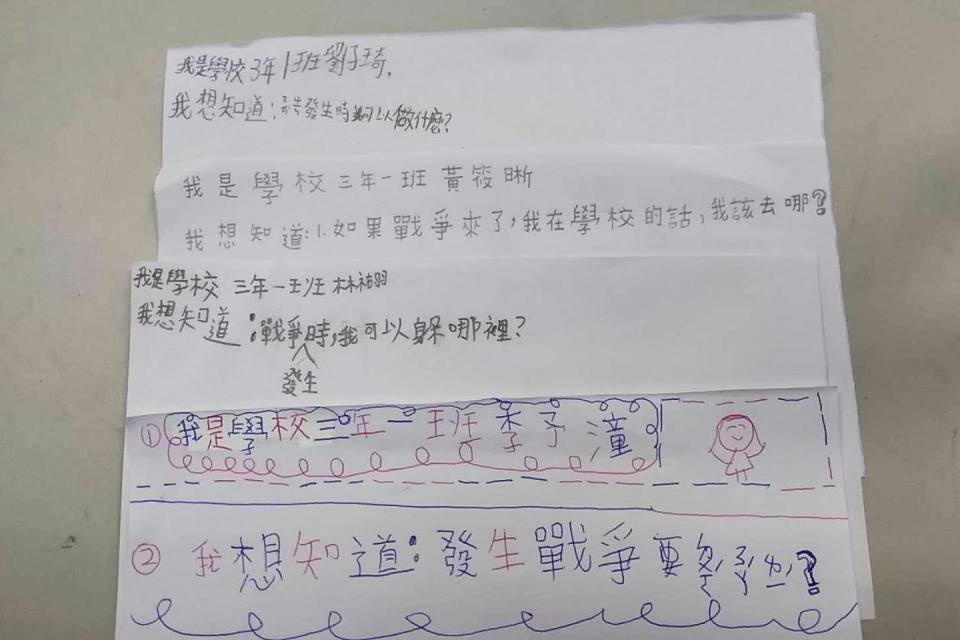 我是學校3年1班劉子琦.
我想知道:發生時我可以做什麼?
我是學校三年一班黃筱晰
我想知道:1.如果戰爭來了,我在學校的話,我該去哪?
我是學校三年一班林祐羽
我想知道:戰爭時,我可以躲哪裡?
發生
①我是學校三年一班李予潼
②我想知道:發生戰爭要?